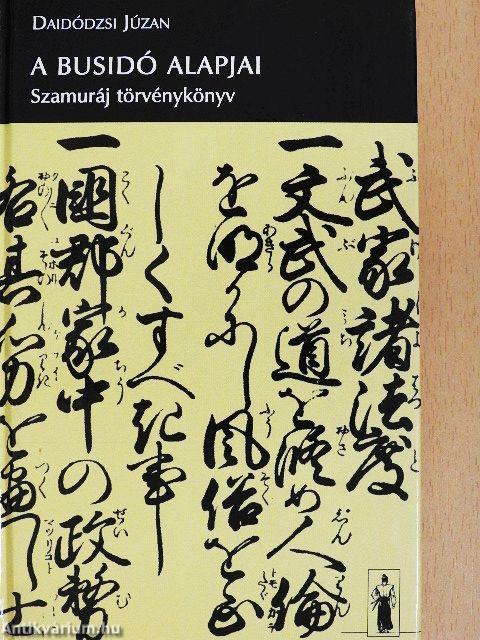 DAIDÓDZSI JÚZAN
A BUSIDÓ ALAPJAI
Szamuráj törvénykönyv
武家諸法度
一文武の道を修め人倫
を明かにし風俗を正
しくすべき事
一國郡家中の政務
各其心力を盡し士
Antikvárium.hu